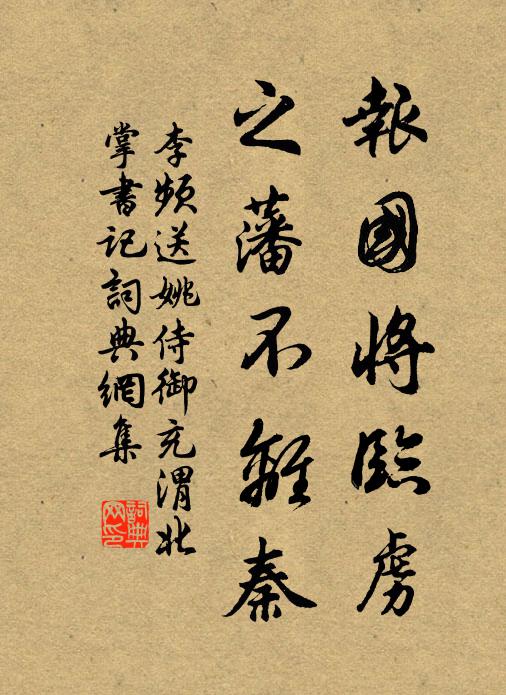 報國將臨虜
之藩不離秦
李頻送姚侍御充渭北
掌書記詞典網集
詞典网印